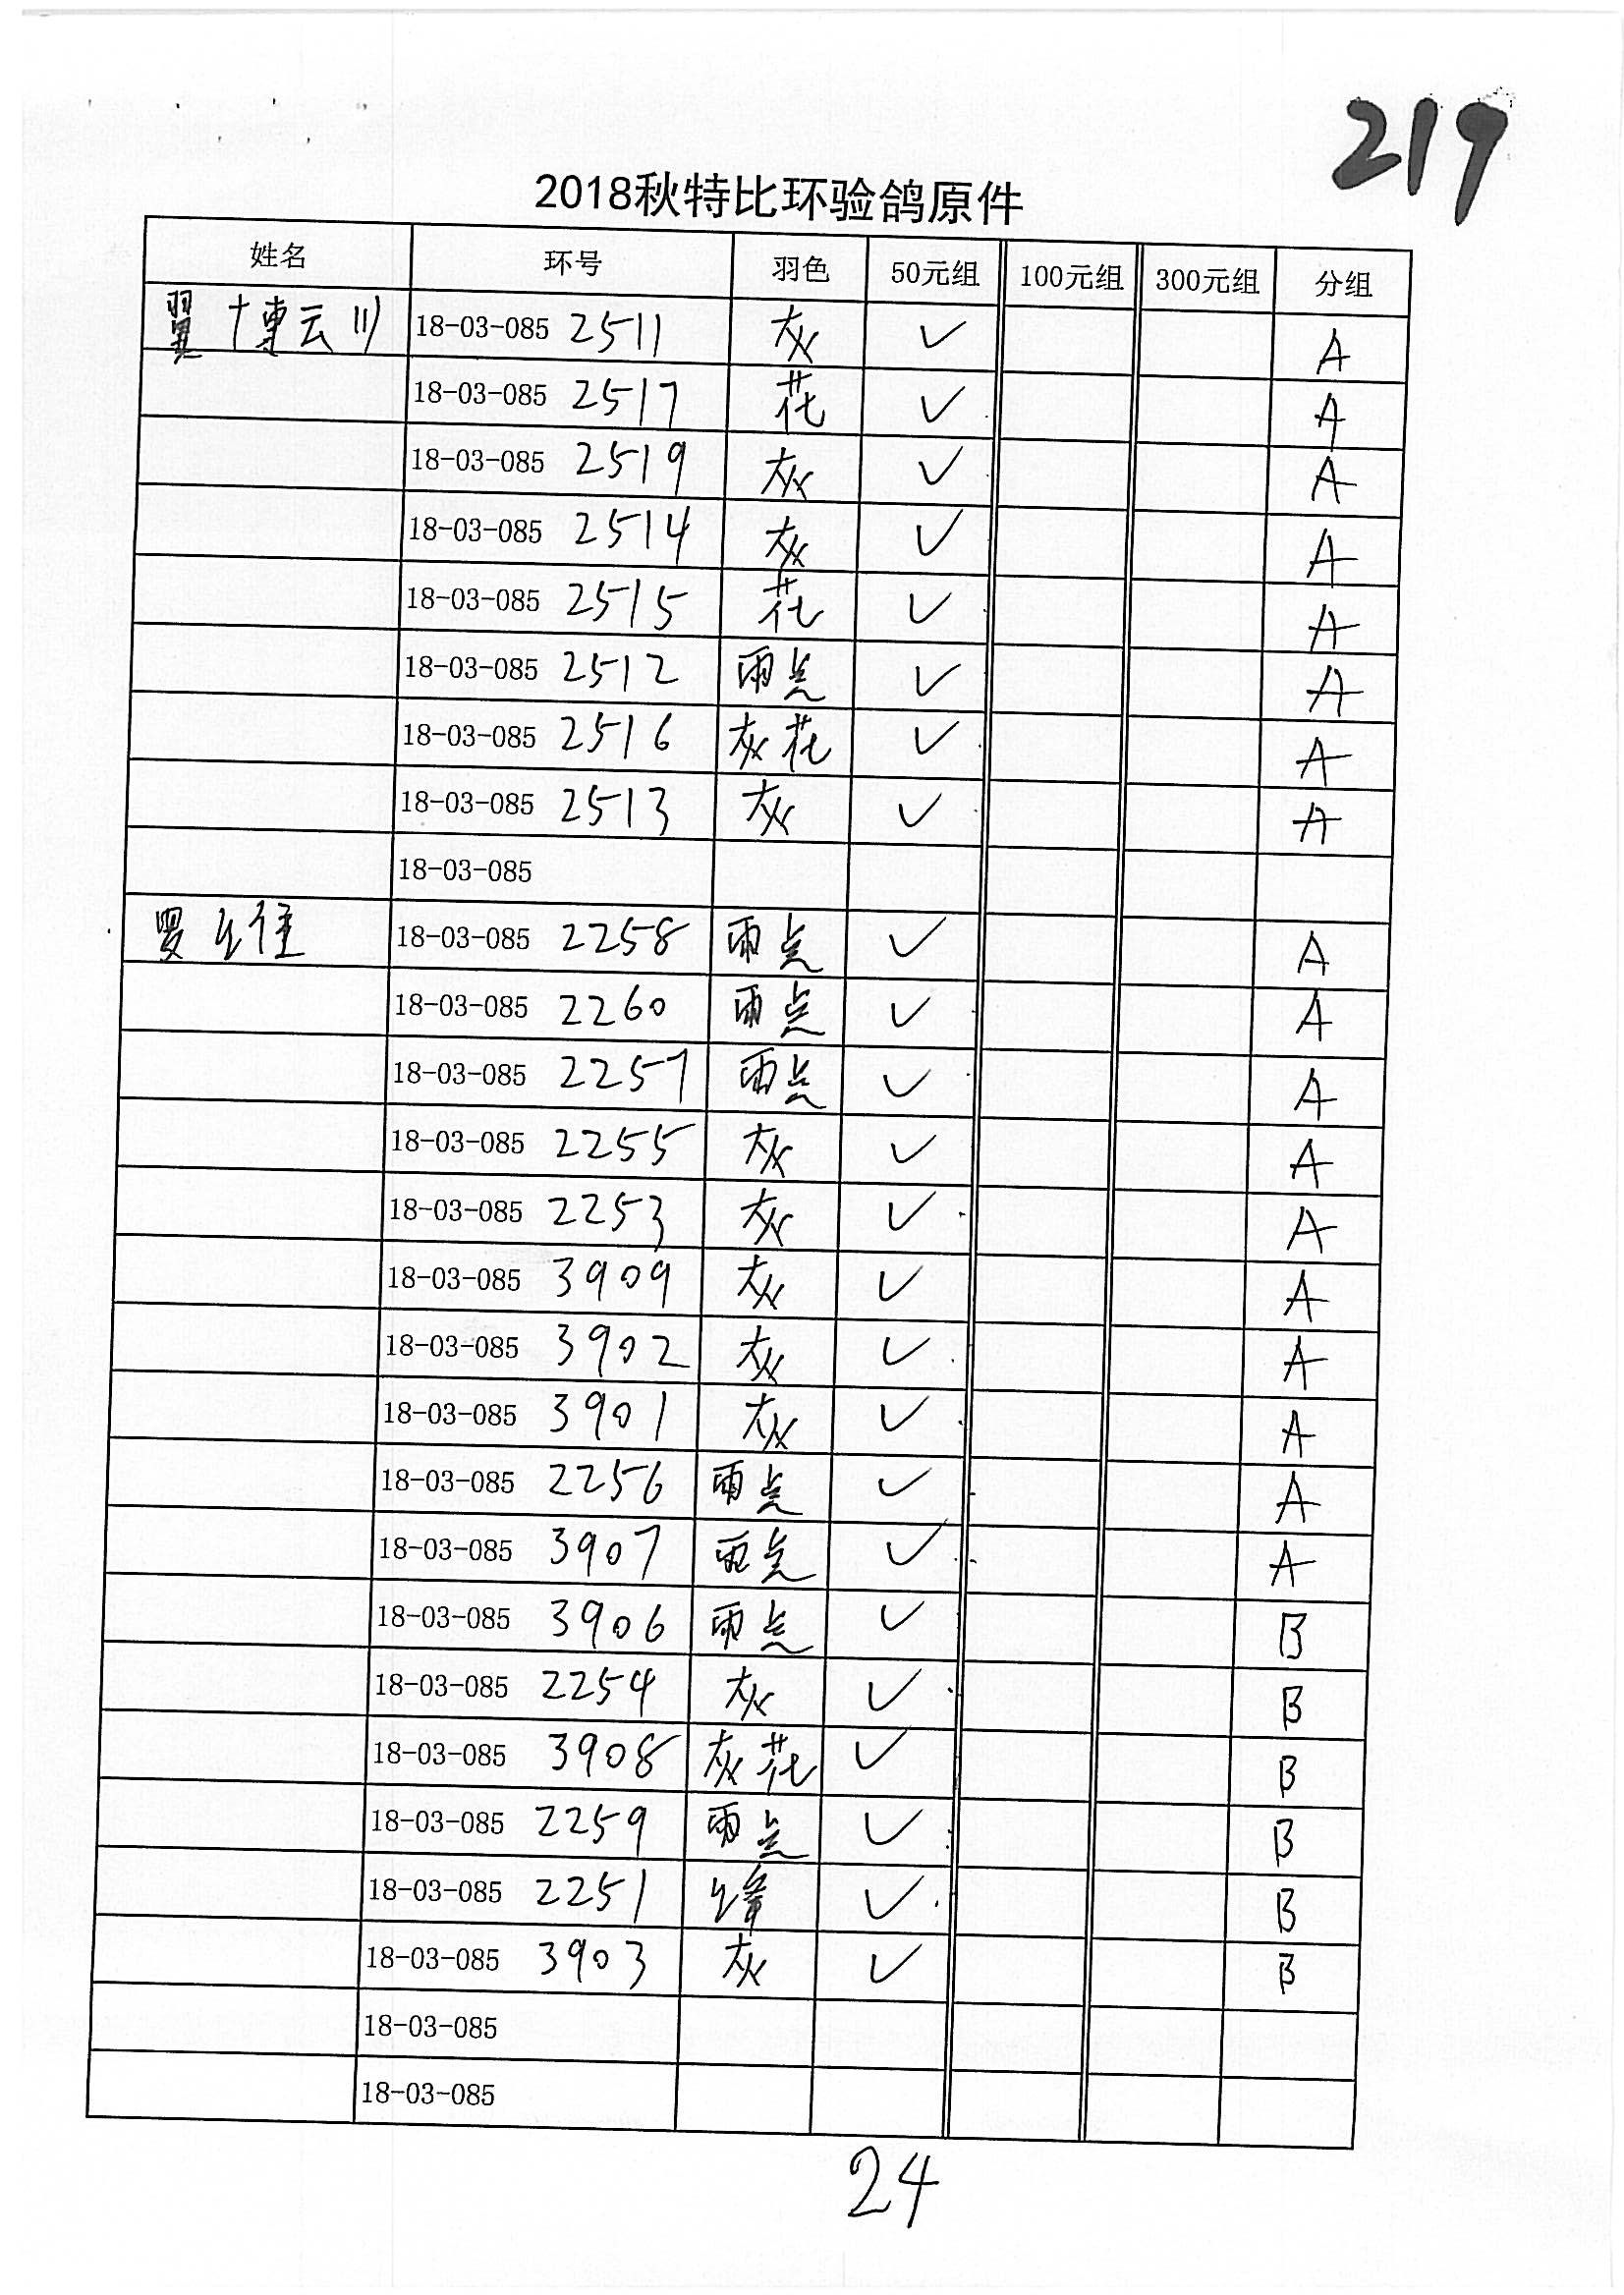 219
2018秋特比环验鸽原件
姓名 环号 羽色 50元组 100元组 300元组 分组
翼博云川 18-03-085 2511 灰 ✓ A
18-03-085 2517 花 ✓ A
18-03-085 2519 灰 ✓ A
18-03-085 2514 灰 ✓ A
18-03-085 2515 花 ✓ A
18-03-085 2512 雨点 ✓ A
18-03-085 2516 灰花 ✓ A
18-03-085 2513 灰 ✓ A
18-03-085
18-03-085 2258 雨点 ✓ A
18-03-085 2260 雨点 ✓ A
18-03-085 2257 雨点 ✓ A
18-03-085 2255 灰 ✓ A
18-03-085 2253 灰 ✓ A
18-03-085 3909 灰 ✓ A
18-03-085 3902 灰 ✓ A
18-03-085 3901 灰 ✓ A
18-03-085 2256 雨点 ✓ A
18-03-085 3907 雨点 ✓ A
18-03-085 3906 雨点 ✓ B
18-03-085 2254 灰 ✓ B
18-03-085 3908 灰花 ✓ B
18-03-085 2259 雨点 ✓ B
18-03-085 2251 绛 ✓ B
18-03-085 3903 灰 ✓ B
18-03-085
18-03-085
24